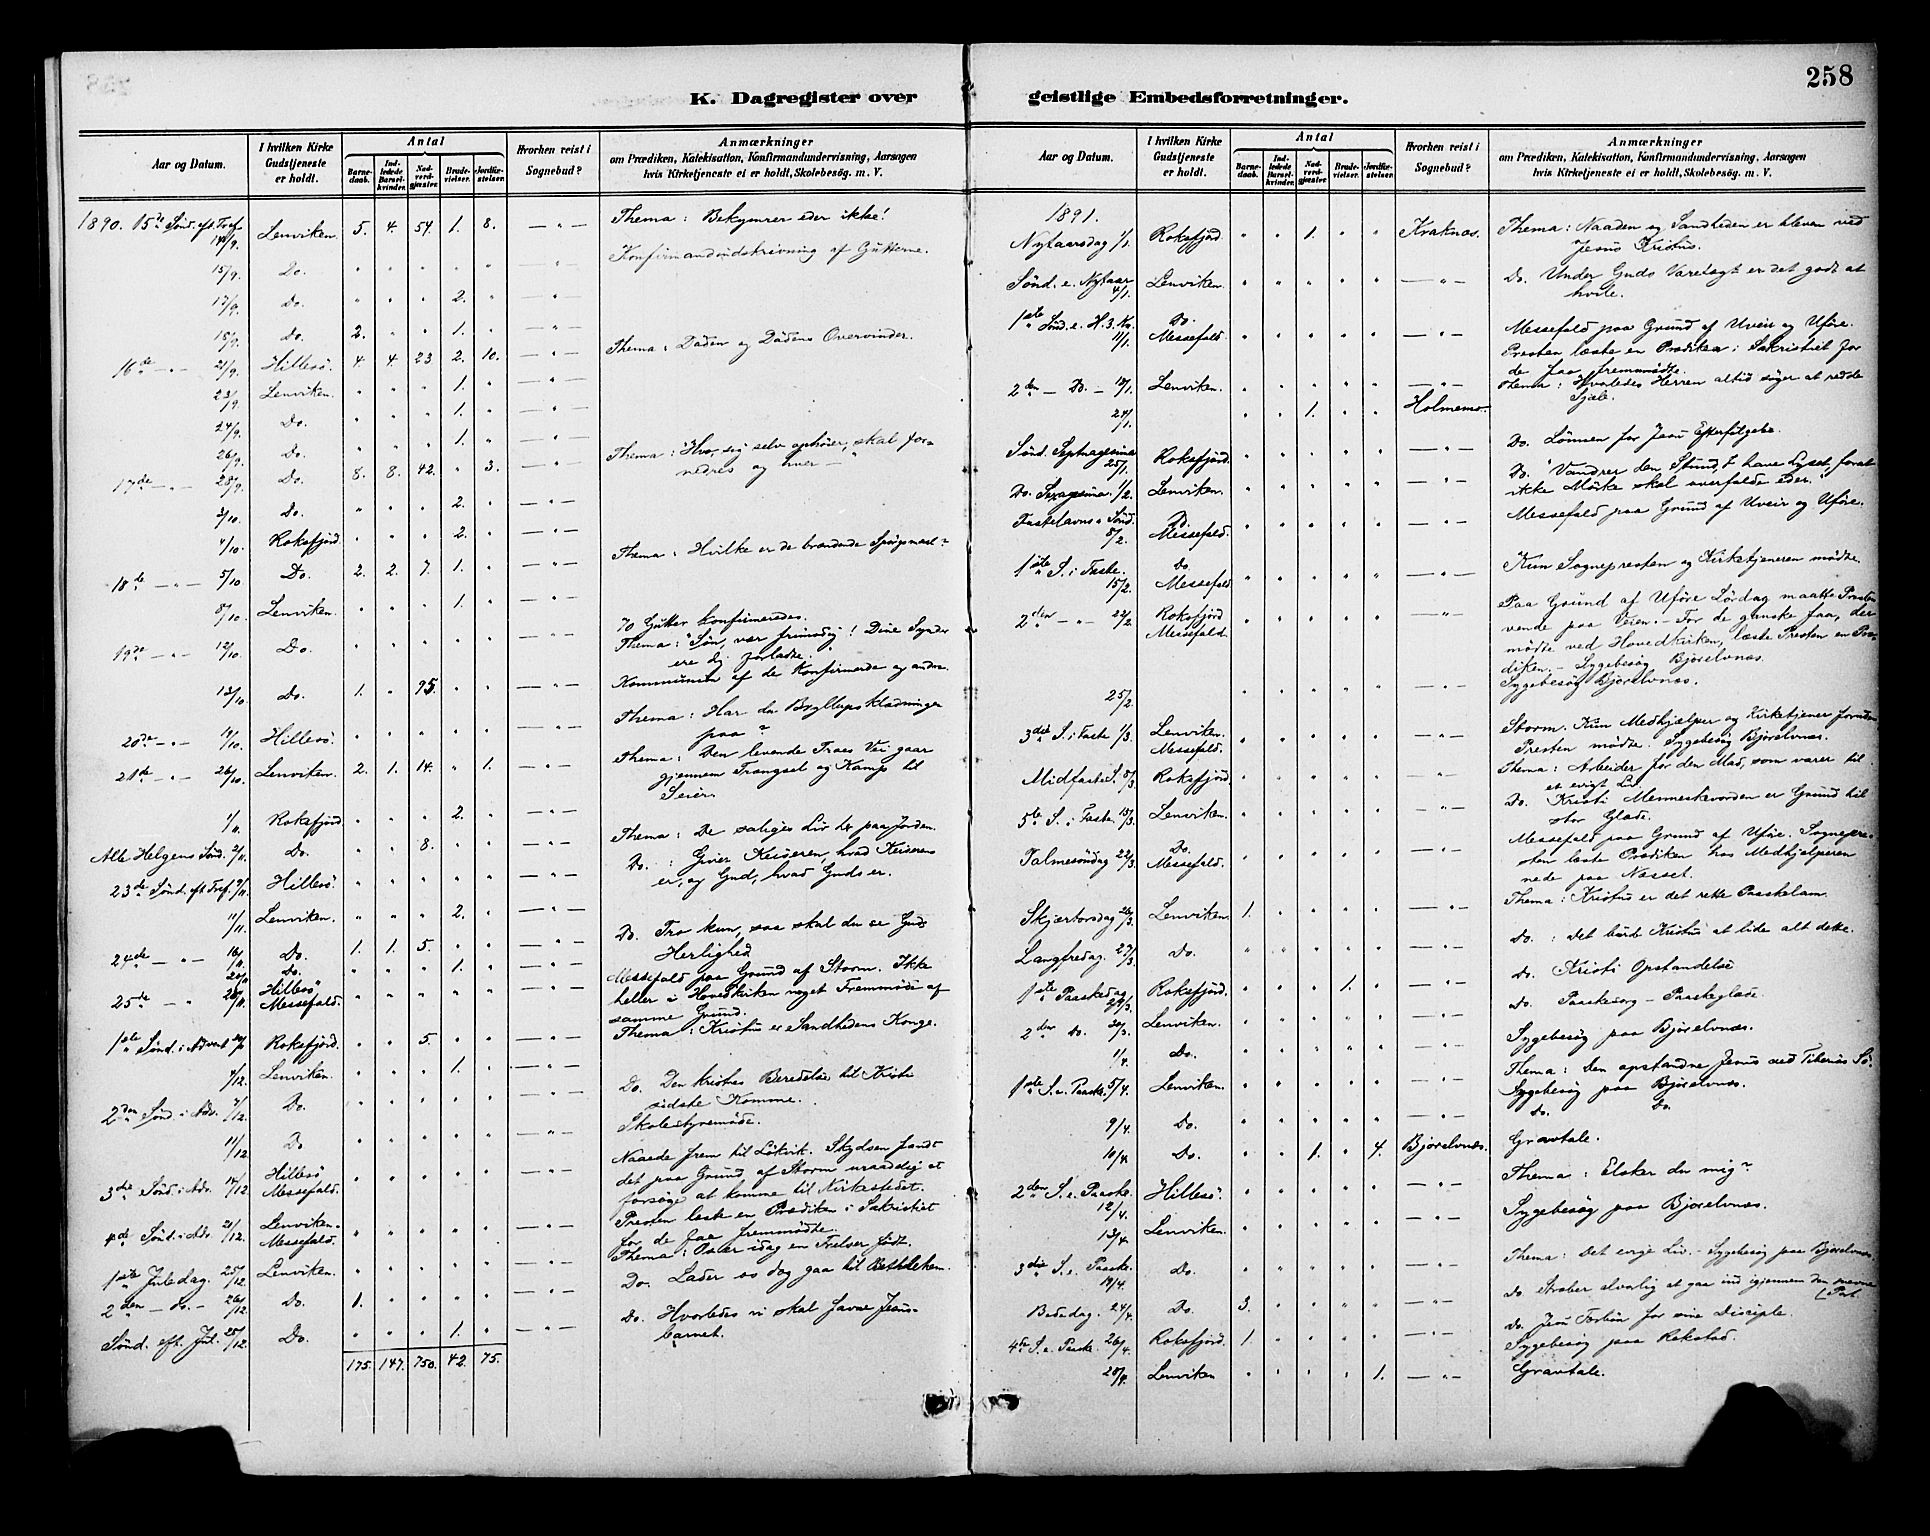 258
K. Dagregister over geistlige Embedsforretninger.
Aar og Datum.
I hvilken Kirke Gudstjeneste er holdt.
Antal
Barne-daab.
Ind-ledede Barsel-kvinder.
Nad-verd-gjæster.
Brude-vielser.
Jordfæ-stelser.
Hvorhen reist i Sognebud?
Anmærkninger
om Prædiken, Katekisation, Konfirmandundervisning, Aarsagen
hvis Kirketjeneste ei er holdt, Skolebesøg. m. V.
1890. 15de Sønd. eft. Tref. 14/9. Lenviken. 5. 4. 54. 1. 8. — " — Thema: Bekymrer eder ikke!
15/9. Do. " " " " " — " — Konfirmandindskrivning af Gutterne.
17/9. Do. " " " 2. " — " —
18/9. Do. 2. " " 1. " — " —
16de — " — 21/9. Hillesö. 4. 4. 23 2. 10. — " — Thema: Döden og Dödens Overvinder.
23/9. Lenviken. " " " 1. "
24/9. Do. " " " 1. "
26/9. Do. " " " 1. "
17de — " — 28/9. Do. 8. 8. 42. " 3. — " — Thema: Hvo, sig selv ophöier, skal for-
nedres og hver — "
3/10. Do. " " " 2. " — " —
4/10. Roksfjord. " " " 2. " — " —
18de — " — 5/10. Do. 2. 2. 7. 1. " — " — Thema: Hvilke er de brændende Spörgsmaal?
8/10. Lenviken. " " " 1. " — " —
19de — " — 12/10. Do. " " " " " — " — 70 Gutter konfirmeredes.
Thema: "Sön, vær frimodig! Dine Synder
ere dig forladte."
13/10. Do. 1. " 95. " " — " — Kommunion af de Konfirmerde og andre.
20de — " — 19/10. Hillesö. " " " " " — " — Thema: Har du Bryllupsklædningen
paa?
21de — " — 26/10. Lenviken. 2. 1. 14. " 1. — " — Thema: Den levende Troes Vei gaar
gjennem Trængsel og Kamp til
Seier.
1/11. Roksfjord. " " " 2. " — " —
Alle Helgens Sønd. 2/11. Do. " " 8. " " — " — Thema: De saliges Liv her paa Jorden.
23de Sønd. eft. Tref. 9/11. Hillesö. " " " " " — " — Do.: Giver Keiseren, hvad Keiserens
er, og Gud, hvad Guds er.
11/11. Lenviken. " " " 2. " — " —
24de — " — 16/11. Do. 1. 1. 5. " " — " — Do. Tro kun, saa skal du se Guds
Herlighed
Do. " " " 1. " — " —
25de — " Hillesö Messefald. " " " " " — " — Messefald paa Grund af Storm. Ikke
heller i Hovedkirken noget Fremmöde af
samme Grund.
1ste Sønd. i Advent Roksfjord. " " 5. " " — " — Thema: Kristus er Sandhedens Konge.
4/12. Lenviken. " " " 1. " — " —
2den Sønd. i Adv. 7/12. Do. " " " " " — " — Do. Den kristnes Beredelse til Kristi
sidste Komme.
11/12. Do " " " " " — " — Skolestyremöde.
3die Sønd. i Adv. 14/12. Hillesö Messefald. " " " " " — " — Naaede frem til Lökvik. Skydsen fandt
det paa Grund af Storm uraadelig at
forsöge at komme til Kirkestedet.
4de Sønd. i Adv. 21/12. Lenviken. Messefald. " " " " " — " — Presten læste en Prædiken i Sakristiet
for de faa fremmödte.
1ste Juledag. 25/12. Lenviken. " " " " " — " — Thema: Os er idag en Frelser födt.
2den — Do. — 26/12. Do. 1. " " " " — " — Do. Lader os dog gaa til Bethlehem.
Sønd. eft. Jul. Do. " " " 1. " — " — Do. Hvorledes vi skal favne Jesus-
barnet.
175. 147. 750. 42. 75.
Aar og Datum.
I hvilken Kirke Gudstjeneste er holdt.
Antal
Barne-daab.
Ind-ledede Barsel-kvinder.
Nad-verd-gjæster.
Brude-vielser.
Jordfæ-stelser.
Hvorhen reist i Sognebud?
Anmærkninger
om Prædiken, Katekisation, Konfirmandundervisning, Aarsagen
hvis Kirketjeneste ei er holdt, Skolebesøg. m. V.
1891.
Nytaarsdag 1/1. Roksfjord. " " 1. " " Kraknæs. Thema: Naaden og Sandheden er bleven ved
Jesus Kristus.
Sönd. e. Nytaar 4/1. Lenviken. " " " " " — " — Do. Under Guds Varetægt er det godt at
hvile.
1ste Sönd. e. H. 3. K. 11/1. Do. Messefald. " " " " " — " — Messefald paa Grund af Uveir og Uföre.
Presten læste en Prædiken i Sakristiet for
de faa fremmödte.
2den — Do. — 18/1. Lenviken. " " " " " — " — Thema: Hvorledes Herren altid söger at redde
Sjæle.
24/1. " " 1. " " Holmenes.
Sönd. Septuagesima 25/1. Roksfjord. " " " " " — " — Do. Lönnen for Jesu Efterfölgelse.
Do. Sexagesima. 1/2. Lenviken. " " " " " — " — Do. "Vandrer den Stund, I have Lyset, forat
ikke Mörke skal overfalde eder."
Fastelavns Sönd. 8/2. Do Messefald. " " " " " — " — Messefald paa Grund af Uveir og Uföre.
1ste S. i Faste. 15/2. Do. Messefald " " " " " — " — Kun Sognepresten og Kirketjeneren mödte.
2den — " — 22/2. Roksfjord Messefald. " " " " " — " — Paa Grund af Uföre Lördag maatte Presten
vende paa Veien. For de ganske faa, der
mödte ved Hovedkirken, læste Presten en Præ-
diken. — Sygebesög Bjorelvnæs.
25/2. " " " " " — " — Sygebesög Bjorelvnæs.
3die S. i Faste 1/3. Lenviken. Messefald. " " " " " — " — Storm. Kun Medhjælper og Kirketjener foruden
Presten mödte. Sygebesög Bjorelvnæs.
Midfaste S. 8/3. Roksfjord. " " " " " — " — Thema: Arbeider for den Mad, som varer til
et evigt Liv.
5te S. i Faste. 15/3. Lenviken. " " " " " — " — Do. Kristi Menneskevorden er Grund til
stor Glæde.
Palmesöndag 22/3. Do. Messefald. " " " " " — " — Messefald paa Grund af Uföre. Sognepre-
sten læste Prædiken hos Medhjelperen
nede paa Næsset.
Skjærtorsdag 26/3. Lenviken. 1. " " " " — " — Thema: Kristus er det rette Paaskelam.
Langfredag. 27/3. Do. " " " " " — " — Do.: Det burde Kristus at lide alt dette.
1ste Paaskedag 29/3. Roksfjord. " " " 1. " — " — Do. Kristi Opstandelse
2den Do. 30/3. Lenviken. " " " " " — " — Do. Paaskesorg — Paaskeglæde.
1/4. Do. " " " " " — " — Sygebesög paa Bjorelvnæs.
1ste S. e. Paaske. 5/4. Lenviken. " " " " " — " — Thema: Den opstandne Jesus ved Tiberias Sö.
Sygebesög paa Bjorelvnæs.
9/4. Do. " " " " " — " — Do. Do.
10/4. Do. " " 1. " 4. Bjorelvnæs. Gravtale.
2den S. e. Paaske. 12/4. Hillesö. " " " " " — " — Thema: Elsker du mig?
13/4. Lenviken. " " " " " — " — Sygebesög paa Bjorelvnæs.
3die S. e. Paaske. 19/4. Do. " " " " " — " — Thema: Det evige Liv. — Sygebesög paa Bjorelvnæs
Bededag. 24/4. Do. 3. " " " " — " — Do. Stræber alvorlig at gaa ind igjennem den snevre
Port.
4de S. e. Paaske. 26/4. Roksfjord. 1. " " " " — " — Do. Jesu Forbön for sine Disciple.
Sygebesög paa Rokstad.
28/4. Lenviken " " " " 1. — " — Gravtale.